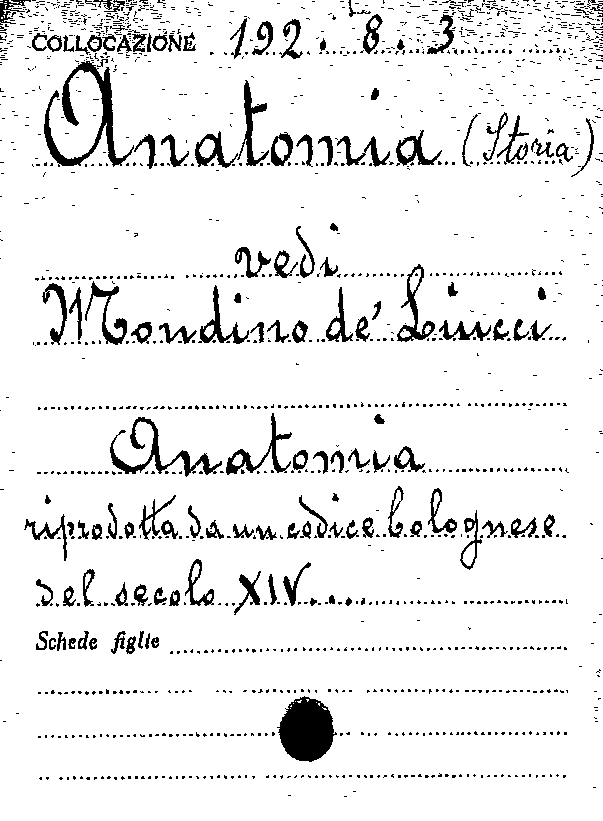 COLLOCAZIONE 192. 8. 3
Anatomia (Storia)
vedi
Mondino de' Liucci
Anatomia
riprodotta da un codice bolognese
del secolo XIV....
Schede figlie